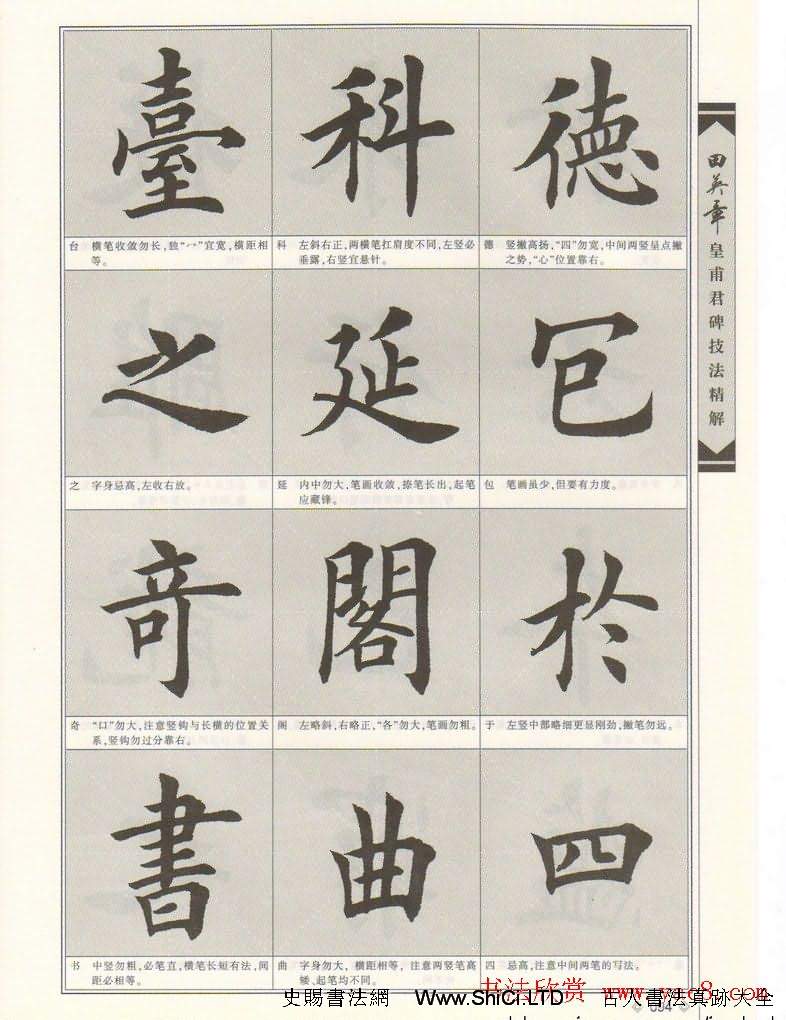 臺 科 德
台 横笔收敛勿长，独“宀”宜宽，横距相
等。
科 左斜右正，两横笔扛肩度不同，左竖必
垂露，右竖宜悬针。
德 竖撇高扬，“四”勿宽，中间两竖呈点撇
之势，“心”位置靠右。
之 延 包
之 字身忌高，左收右放。
延 内中勿大，笔画收敛，捺笔长出，起笔
应藏锋。
包 笔画虽少，但要有力度。
奇 閣 於
奇 “口”勿大，注意竖钩与长横的位置关
系，竖钩勿过分靠右。
阁 左略斜，右略正，“各”勿大，笔画勿粗。
于 左竖中部略细更显刚劲，撇笔勿远。
書 曲 四
书 中竖勿粗，必笔直，横笔长短有法，间
距必相等。
曲 字身勿大，横距相等，注意两竖笔高
矮、起笔均不同。
四 忌高，注意中间两笔的写法。
田英章皇甫君碑技法精解
书法欣赏 www.yac8.com
史賜書法網 Www.ShiCi.LTD 古人書法真跡大全
094